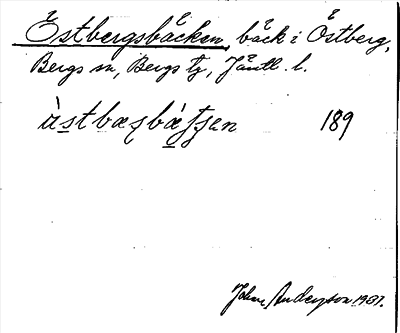 Östbergsbäcken, bäck i Östberg,
Bergs sn, Bergs tg, Jämtl. l.
ùstbæʂbátʃen 189
Johan Anderzson 1937.